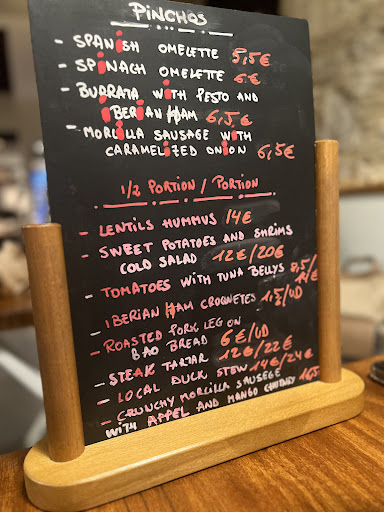 PINCHOS
- SPANISH OMELETTE 5,5€
- SPINACH OMELETTE 6€
- BURRATA WITH PESTO AND
IBERIAN HAM 6,5€
- MORCILLA SAUSAGE WITH
CARAMELIZED ONION 6,5€
1/2 PORTION / PORTION
- LENTILS HUMMUS 14€
- SWEET POTATOES AND SHRIMS
COLD SALAD 12€/20€
- TOMATOES WITH TUNA BELLYS 8,5/
14€
- IBERIAN HAM CROQNETES 1,5/UD
- ROASTED PORK LEG ON
BAO BREAD 6€/UD
- STEAK TARTAR 12€/22€
- LOCAL DUCK STEW 14€/24€
- CRUNCHY MORCILLA SAUSEGE
WITH APPEL AND MANGO CHUTNEY